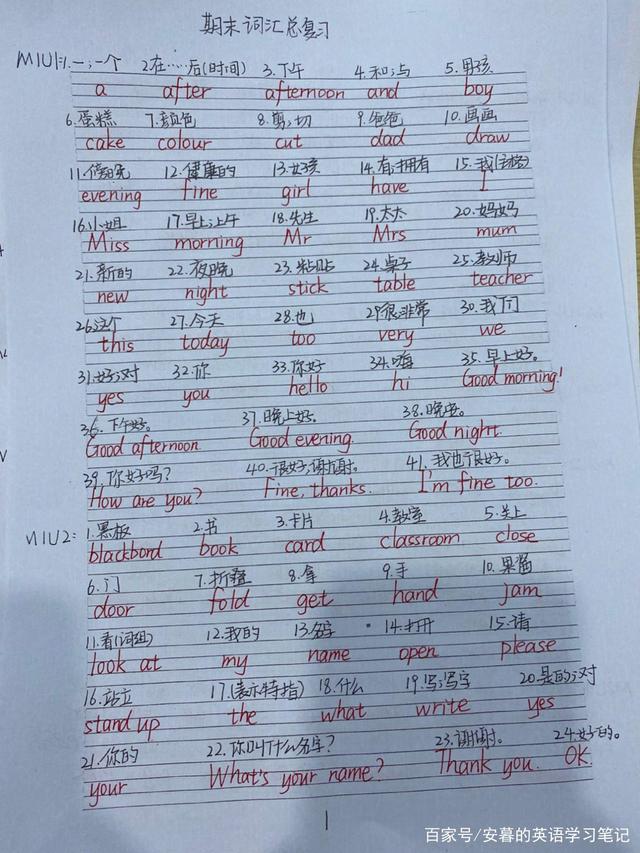 期末词汇总复习
M1U1:1.一;一个 2.在……后(时间) 3.下午 4.和;与 5.男孩
a after afternoon and boy
6.蛋糕 7.颜色 8.剪;切 9.爸爸 10.画画
cake colour cut dad draw
11.傍晚 12.健康的 13.女孩 14.有;拥有 15.我(主格)
evening fine girl have I
16.小姐 17.早上;上午 18.先生 19.太太 20.妈妈
Miss morning Mr Mrs mum
21.新的 22.夜晚 23.粘贴 24.桌子 25.教师
new night stick table teacher
26.这个 27.今天 28.也 29.很;非常 30.我们
this today too very we
31.好;对 32.你 33.你好 34.嗨 35.早上好。
yes you hello hi Good morning!
36.下午好。 37.晚上好。 38.晚安。
Good afternoon. Good evening. Good night.
39.你好吗? 40.很好,谢谢。 41.我也很好。
How are you? Fine, thanks. I'm fine too.
M1U2:1.黑板 2.书 3.卡片 4.教室 5.关上
blackbord book card classroom close
6.门 7.折叠 8.拿 9.手 10.果酱
door fold get hand jam
11.看(词组) 12.我的 13.名字 14.打开 15.请
look at my name open please
16.站立 17.(表示特指) 18.什么 19.写;写字 20.是的;对
stand up the what write yes
21.你的 22.你叫什么名字? 23.谢谢。 24.好的。
your What's your name? Thank you. OK.
1
百家号/安暮的英语学习笔记